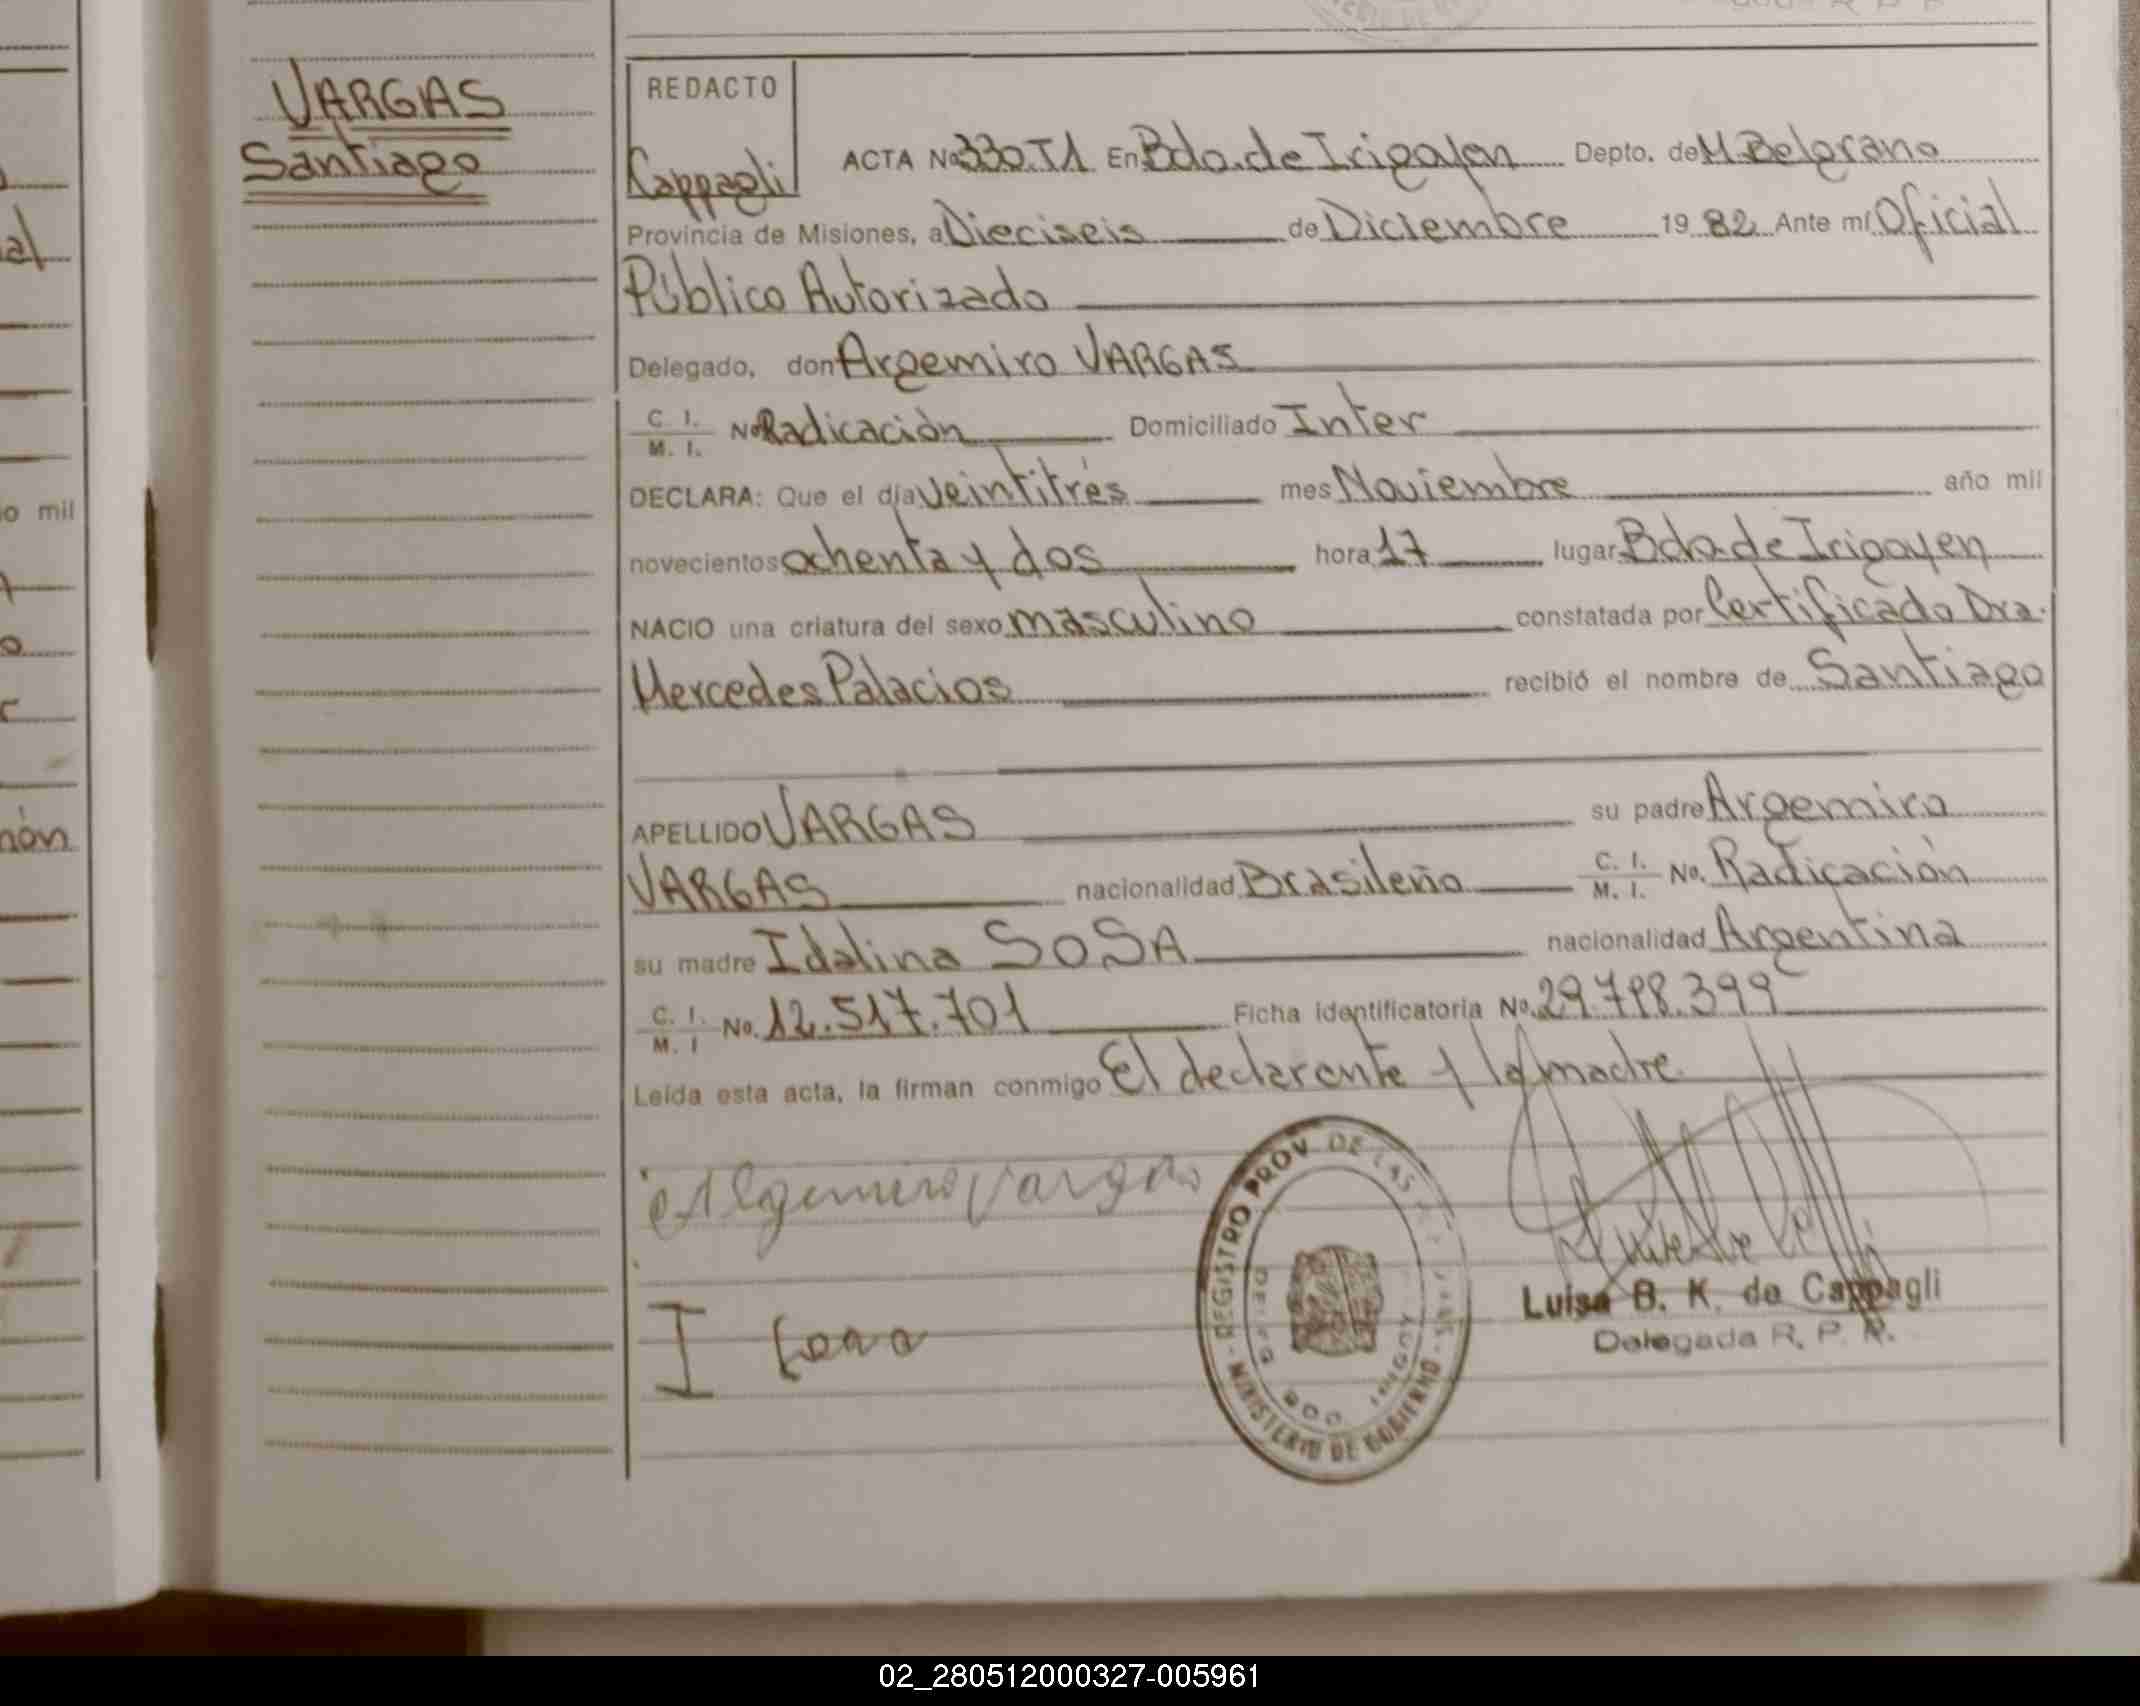 VARGAS
Santiago
REDACTO
Cappagli
ACTA No 330.T1 En Bdo. de Irigoyen Depto. de M. Belgrano
Provincia de Misiones, a Dieciseis de Diciembre 19 82 Ante mí Oficial
Público Autorizado
Delegado, don Argemiro VARGAS
C. I.
M. I. No Radicación Domiciliado Inter
DECLARA: Que el día veintitrés mes Noviembre año mil
novecientos ochenta y dos hora 17 lugar Bdo. de Irigoyen
NACIO una criatura del sexo masculino constatada por Certificado Dra.
Mercedes Palacios recibió el nombre de Santiago
APELLIDO VARGAS su padre Argemiro
VARGAS nacionalidad Brasileño C. I. M. I. No. Radicación
su madre Idalina SOSA nacionalidad Argentina
C. I. M. I No. 12.517.701 Ficha identificatoria No. 29.798.399
Leída esta acta, la firman conmigo El declarante y la madre
Algemiro Vargas
I Sosa
REGISTRO PROV. DE LAS
MINISTERIO DE GOBIERNO
DELEG
BDO
IRIGOY
Luisa B. K. de Cappagli
Delegada R. P. P.
o mil
nón
al
02_280512000327-005961